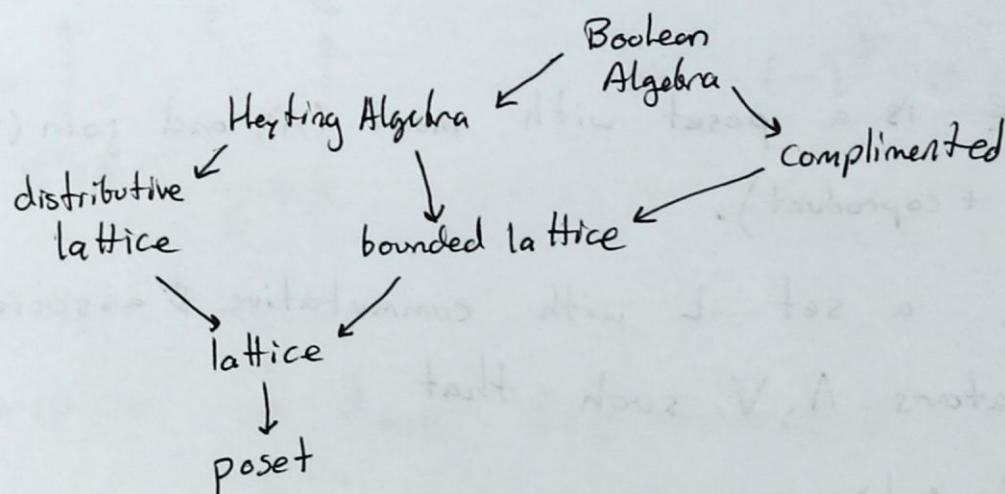 Boolean
Algebra
Heyting Algebra
complimented
distributive
lattice
bounded lattice
lattice
poset